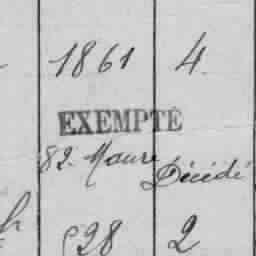 1861 4.
EXEMPTÉ
82. Maure Décédé
28 2